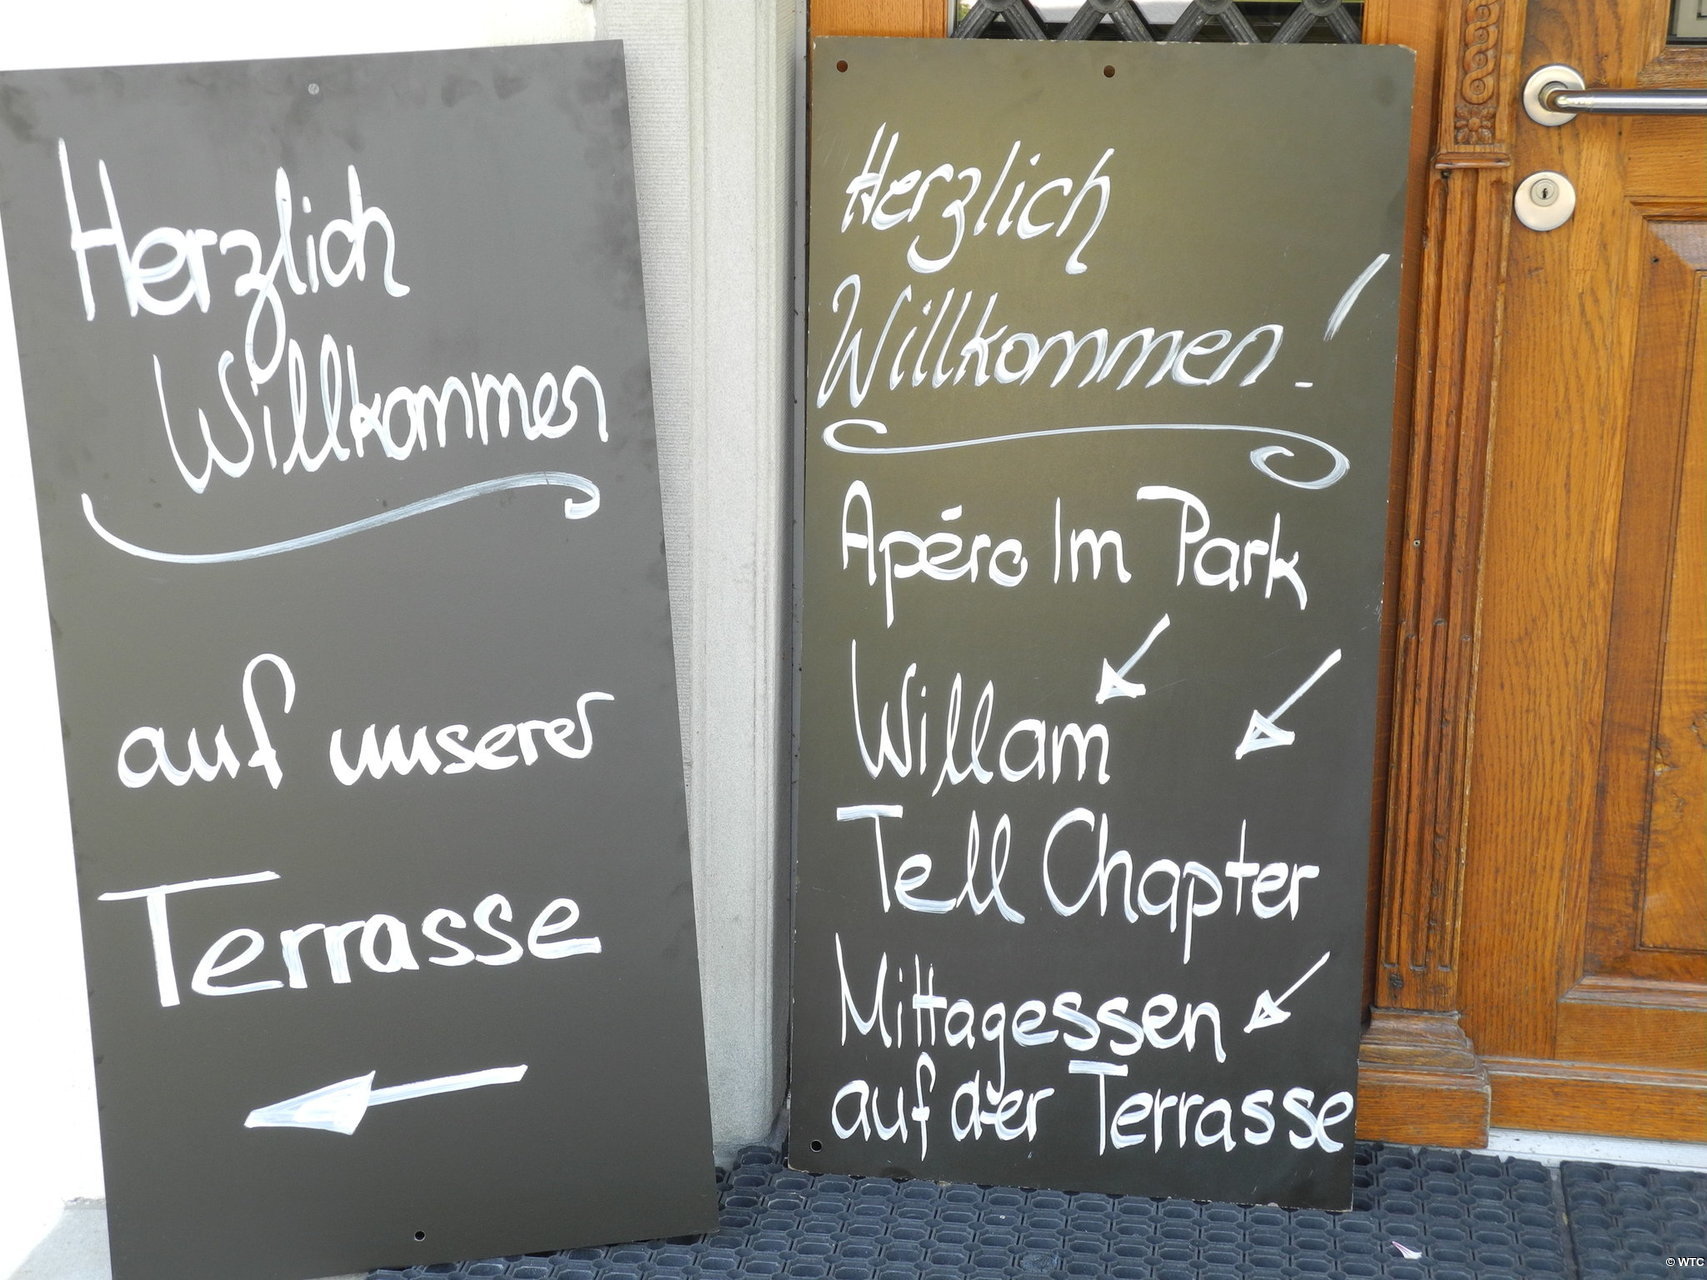 Herzlich
Willkommen
auf unserer
Terrasse
Herzlich
Willkommen!
Apéro Im Park
Willam
Tell Chapter
Mittagessen
auf der Terrasse
© WTC